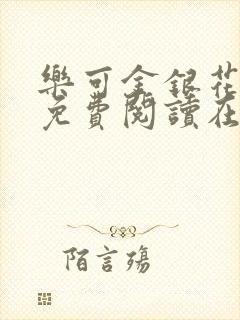 樂可金銀花
免費閱讀在
陌言殤